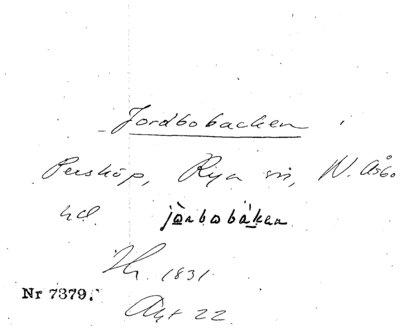 Jordbobacken
Perstop, Rya sn, N. Åsbo
hd. jo̲rbobák̲en
Hr. 1831
Nr 7379.
Akt 22